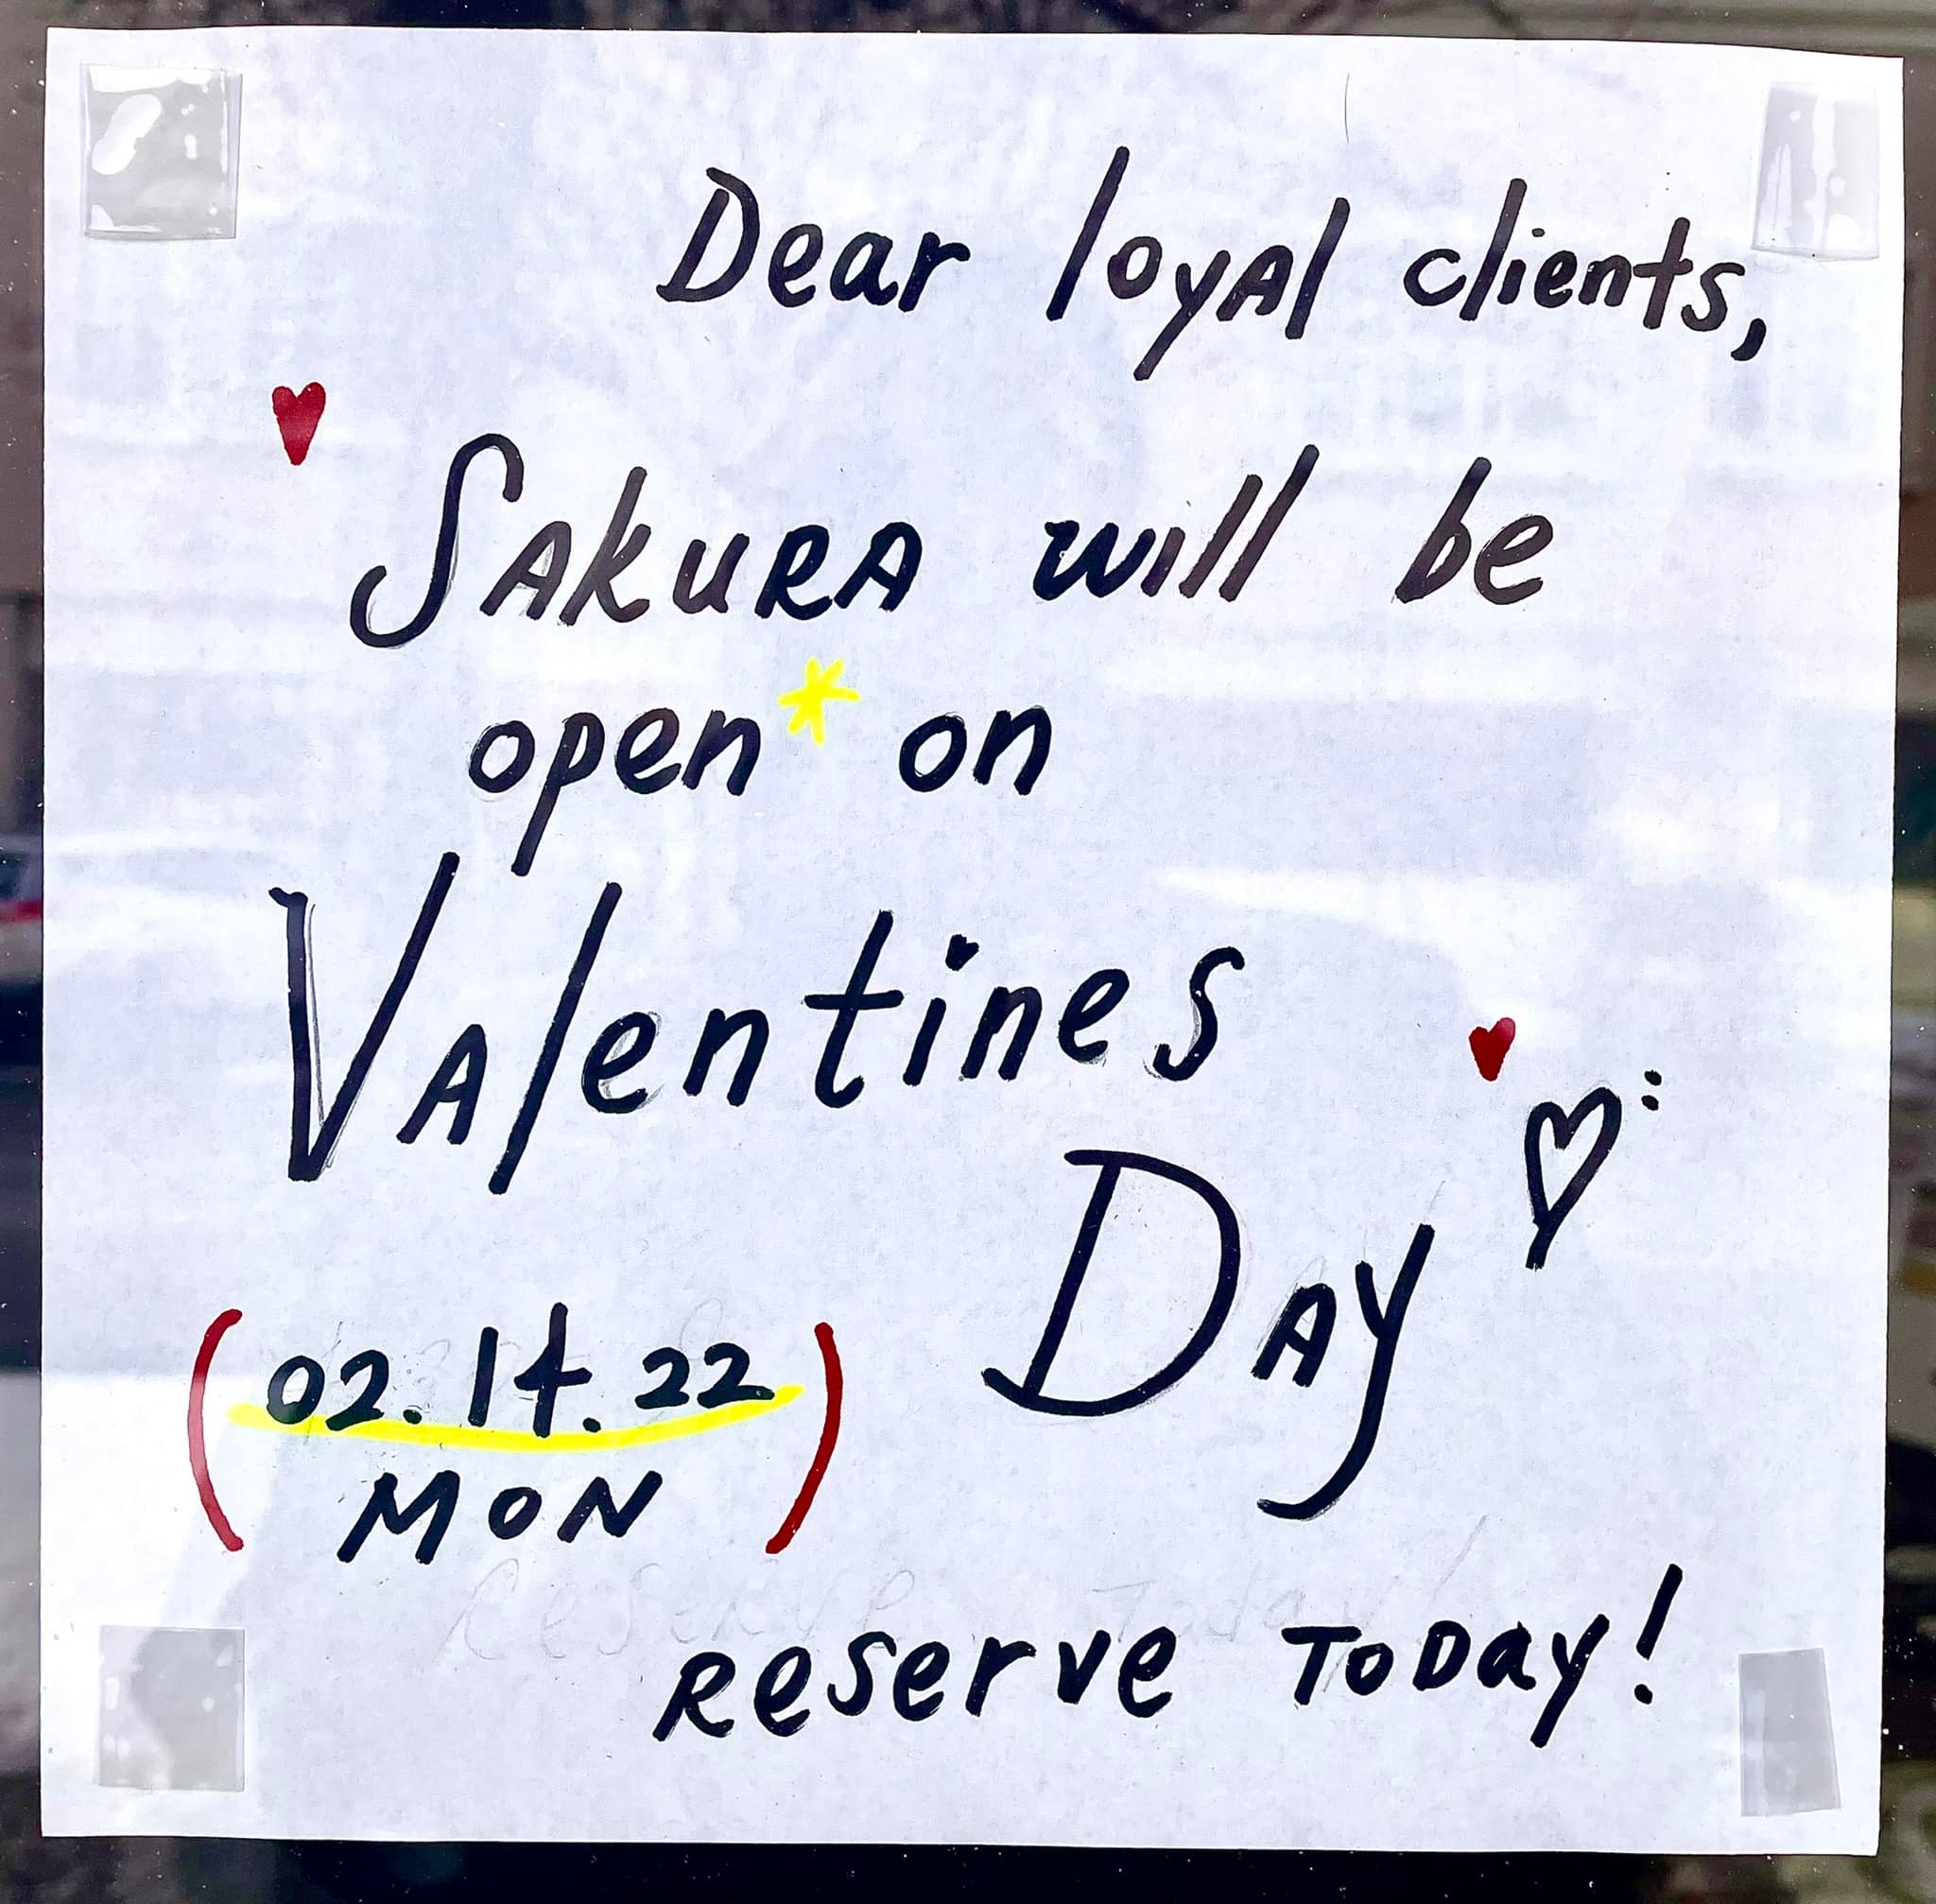 Dear loyAl clients,
SAkuRA will be
open* on
VAlentines
DAy ♡:
(02.14.22
MON)
Reserve ToDay!